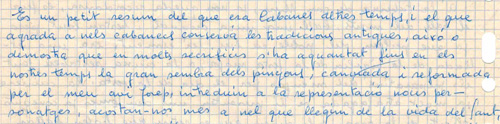 Es un petit resum del que era Cabanes altres temps, i el que
agrada a nels cabanecs conservá les tradicions antigues, aixó o
demostra que en molts sacrificis s'ha aguantat fins en els
nostres temps la gran semblá dels punjons, canviada i reformada
per el meu avi Josep, introduin a la representació nous per-
sonatges, acostan-nos més a nel que llegim de la vida del Sant